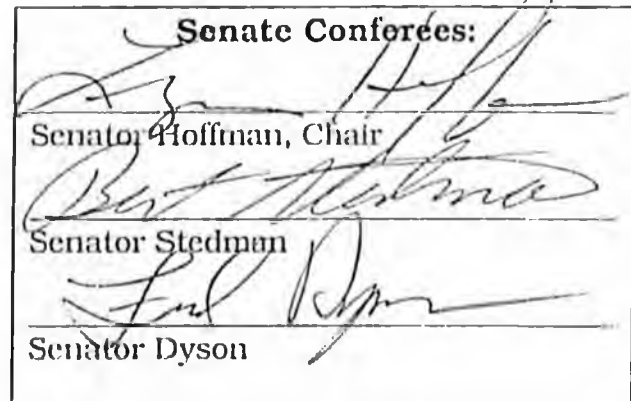 Senate Conferees:
Senator Hoffman, Chair
Bert Stedman
Senator Stedman
Fred Dyson
Senator Dyson